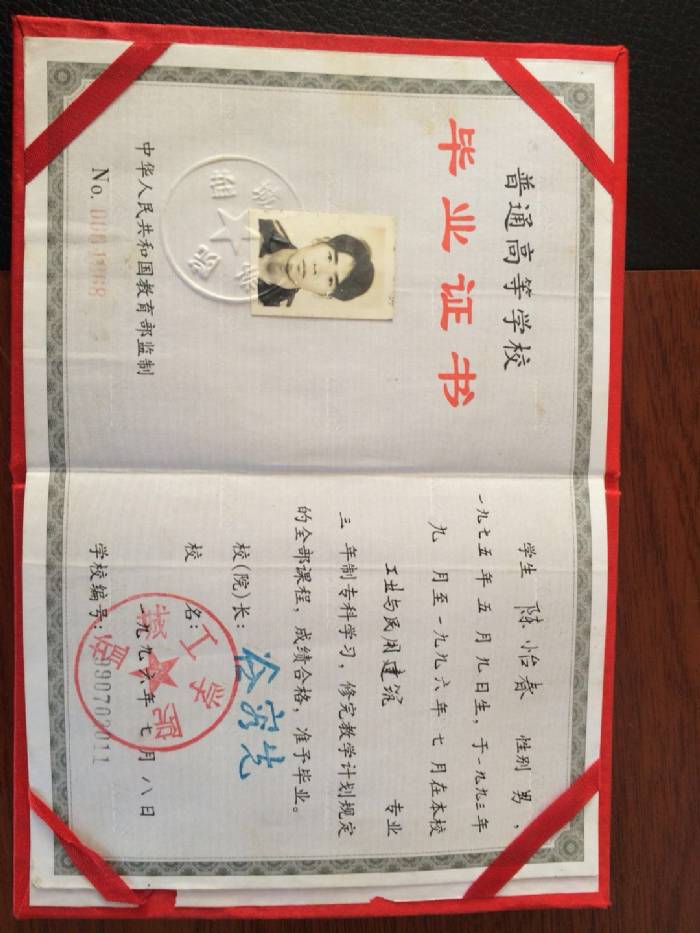 普通高等学校
毕业证书
中华人民共和国教育部监制
No.
学生 陈怡春 性别 男,
一九七五年五月九日生,于一九九三年
九月至一九九六年七月在本校
工业与民用建筑 专业
三年制专科学习,修完教学计划规定
的全部课程,成绩合格,准予毕业。
校(院)长:
校名:
一九九六年七月八日
学校编号: